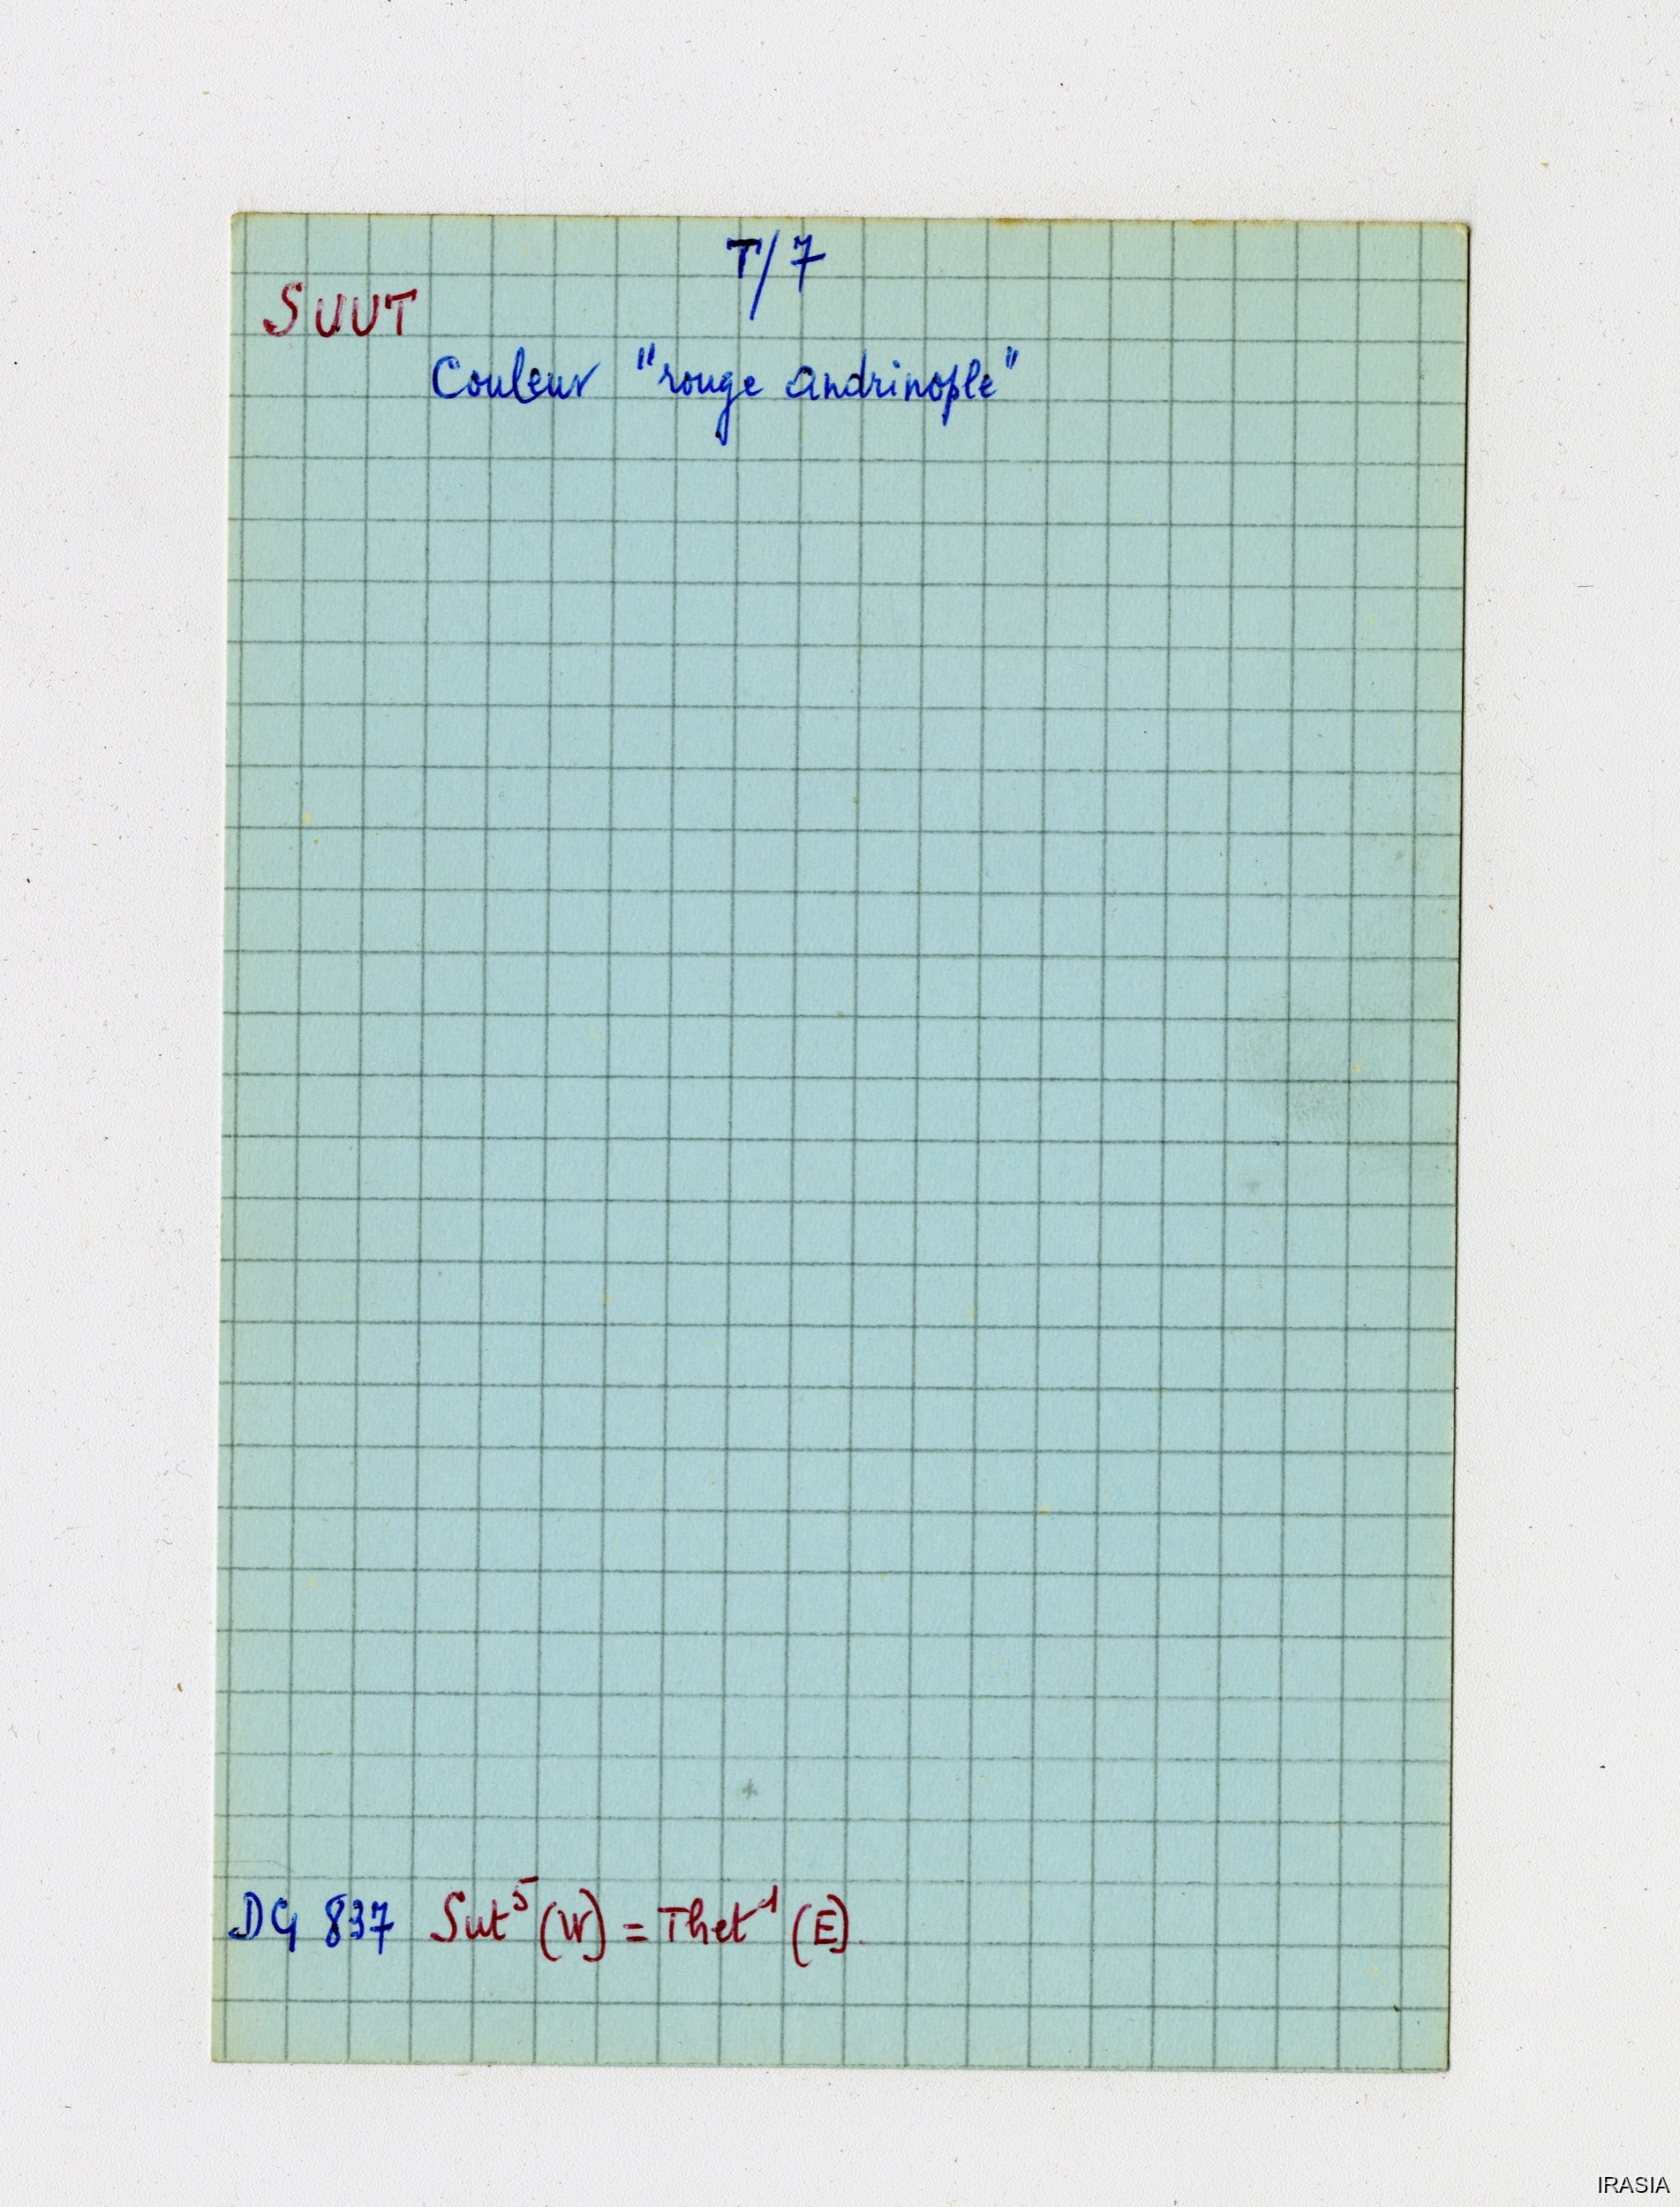 T/7
SUUT
Couleur "rouge andrinople"
DG 837 Sut⁵ (W) = Thet¹ (E)
IRASIA